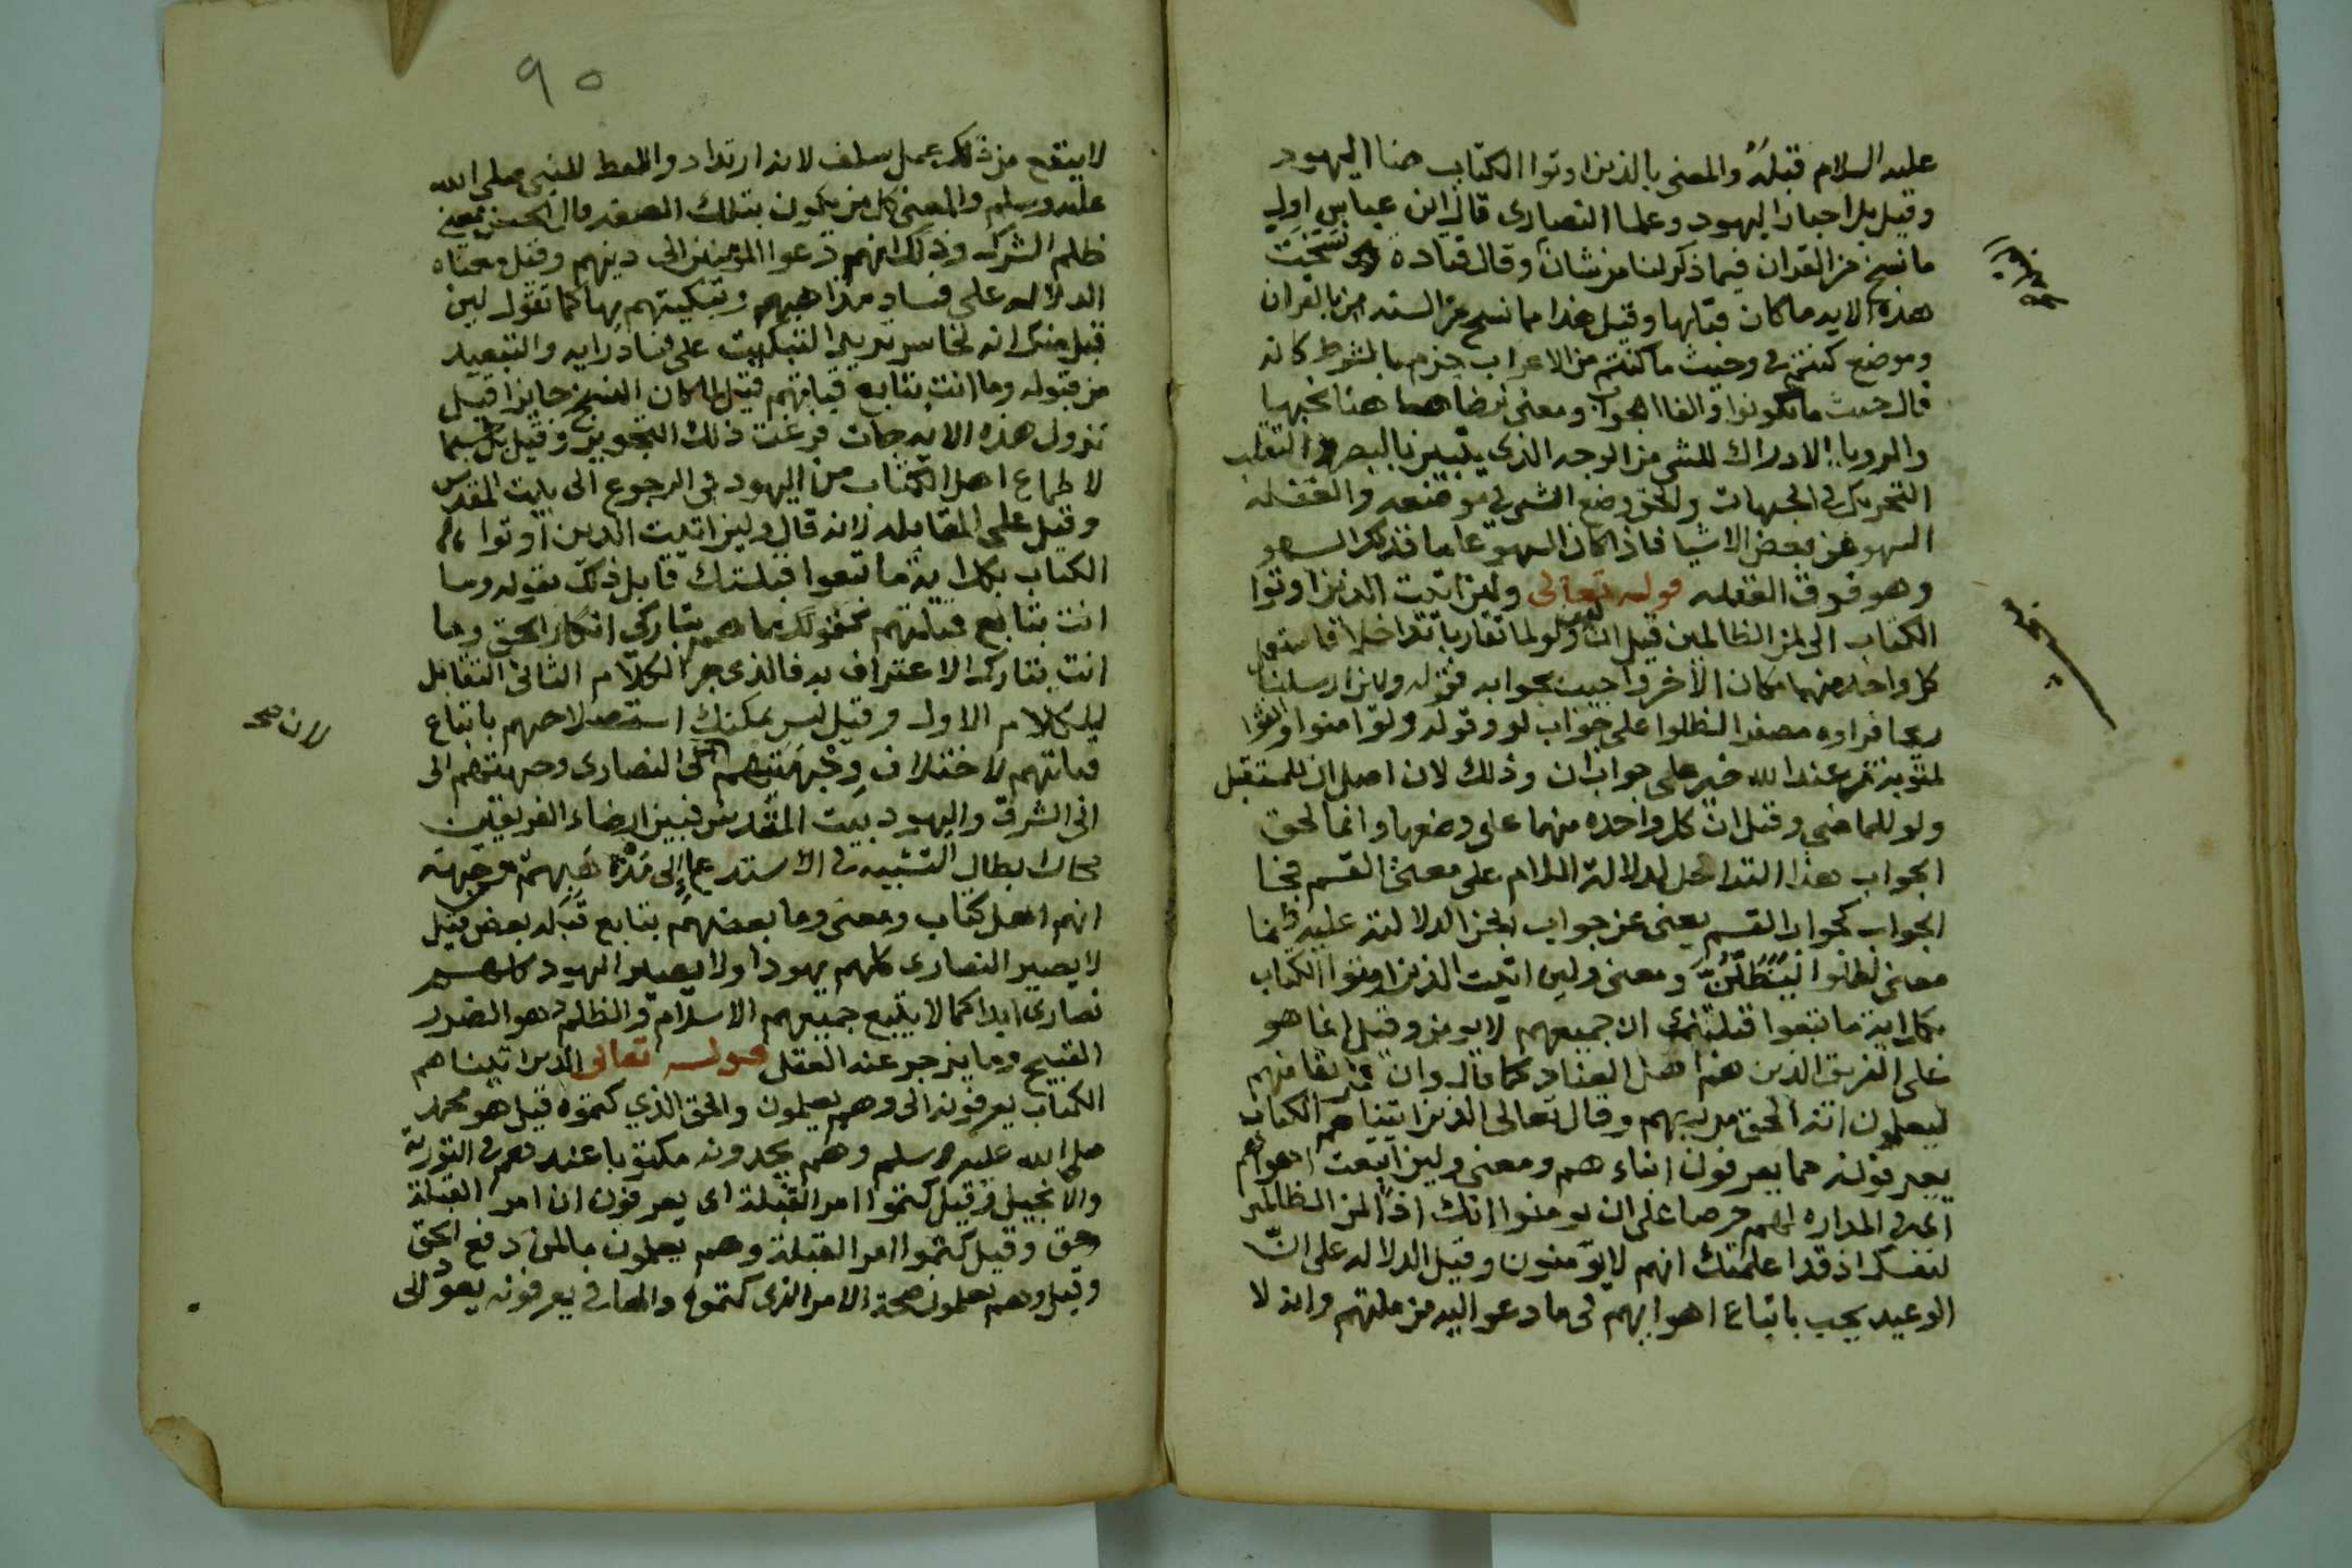 عليه السلام قبله والمعنى بالذين اوتوا الكتاب هنا اليهود
وقيل بل احبار اليهود وعلما النصارى قال ابن عباس اول
ما نسخ من القران فيما ذكر لنا من شان وقال قتادة نسخت
هذه الايه ما كان قبلها وقيل هذا مما نسخ من السنه بالقران
وموضع كنتم في وحيث ما كنتم من الاعراب جزم بالشرط كانه
قال حيث ما تكونوا والفا الجواب ومعنى ترضاها هنا تحبها
والرويا الادراك للشى من الوجه الذى يتبين بالبصر والتقلب
التحريك في الجهات والحق وضع الشى في موضعه والغفله
السهو عن بعض الاشيا فاذا كان السهو عاما فذكر السهو
وهو فوق الغفله قوله تعالى ولين اتيت الذين اوتوا
الكتاب الى لمن الظالمين قيل ان ولو لما تقاربا تداخلا فاستعمل
كل واحده منهما مكان الاخر واجيبت بجوابه فقوله ولين ارسلنا
ريحا فراوه مصفرا لظلوا على جواب لو وقوله ولو امنوا واتقوا
لمثوبة من عند الله خير على جواب ان وذلك لان اصل ان للمستقبل
ولو للماضي وقيل ان كل واحده منهما على وضعها وانما لحق
الجواب هذا التداخل لدلالة اللام على معنى القسم فجا
الجواب كجواب القسم يعنى عن جواب الجزا لدلالته عليه
معنى لظلوا ليظلن ومعنى ولين اتيت الذين اوتوا الكتاب
بكل اية ما تبعوا قبلتك ان جميعهم لا يومن وقيل انما هو
على الفريق الذين هم اهل العناد كما قال وان فريقا منهم
ليعلمون انه الحق من ربهم وقال تعالى الذين اتيناهم الكتاب
يعرفونه كما يعرفون ابناءهم ومعنى ولين اتبعت اهواهم
في المداره لهم حرصا على ان يومنوا انك اذا لمن الظالمين
لنفسك اذ قد اعلمتك انهم لا يومنون وقيل الدلاله على ان
الوعيد يجب باتباع اهوايهم في ما دعوا اليه من ملتهم وانه لا
٩٠
لا ينفع من ذلك عمل سلف لانه ارتداد واللفظ للنبي صلى الله
عليه وسلم والمعنى كل من يكون بتلك الصفه وقال الحسن معنى
ظلم الشرك وذلك انهم دعوا المومنين الى دينهم وقيل معناه
الدلاله على فساد مذاهبهم وتبكيتهم بها كما تقول لين
قبل منك انه لخاسر تريد التبكيت على فساد رايه والتبعيد
من قبوله وما انت بتابع قبلتهم قيل لما كان النسخ جايزا قبل
نزول هذه الايه جات فرفعت ذلك التجويز وقيل بل حسما
لاطماع اهل الكتاب من اليهود في الرجوع الى بيت المقدس
وقيل على المقابله لانه قال ولين اتيت الذين اوتوا
الكتاب بكل اية ما تبعوا قبلتك قابل ذلك بقوله وما
انت بتابع قبلتهم كقولك ما هم بتاركي انكار الحق وما
انت بتارك الاعتراف به فالذى جر الكلام الثانى التقابل
للكلام الاول وقيل ليس يمكنك استصلاحهم باتباع
قبلتهم لاختلاف وجهتهم لان النصارى وجهتهم الى
لان صح
الى الشرق واليهود بيت المقدس فبين ارضاء الفريقين
انهم اهل كتاب ومعنى وما بعضهم بتابع قبله بعض قيل
لا يصير النصارى كلهم يهودا ولا يصير اليهود كلهم
نصارى ابدا كما لا يتبع جميعهم الاسلام والظلم هو الضرر
القبيح وما يزجر عنه العقل قوله تعالى الذين اتيناهم
الكتاب يعرفونه الى وهم يعلمون والحق الذي كتموه قيل هو محمد
صلى الله عليه وسلم وهم يجدونه مكتوبا عندهم في التورية
والانجيل وقيل كتموا امر القبلة اى يعرفون ان امر القبلة
حق وقيل كتموا امر القبلة وهم يعلمون ما لمن دفع الحق
وقيل وهم يعلمون صحة الامر الذى كتموه والها في يعرفونه يعود الى